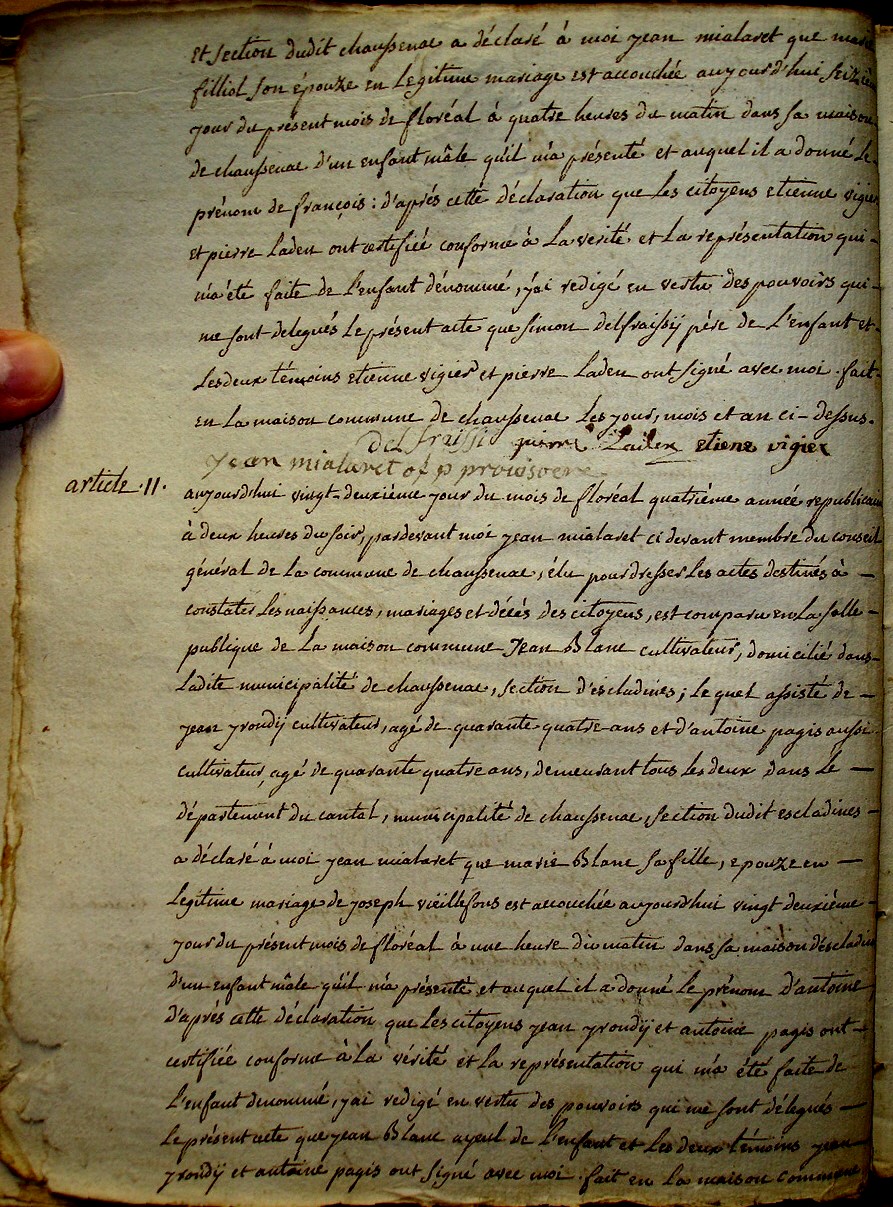 et section dudit chaussenac a déclaré à moi jean mialaret que marie
filliol son épouze en legitime mariage est accouchée aujourd'hui seizième
jour du présent mois de floréal à quatre heures du matin dans sa maison
de chaussenac d'un enfant mâle qu'il m'a présenté et auquel il a donné le
prénom de françois : d'aprés cette déclaration que les citoyens etienne vigier
et pierre Laden ont certifiée conforme à La verité et La représentation qui
m'a été faite de l'enfant dénommé, j'ai redigé en vertu des pouvoirs qui
me sont delegués Le présent acte que simon delfraissÿ pére de L'enfant et
Les deux témoins etienne vigier et pierre Laden ont signé avec moi. fait
en La maison commune de chaussenac Les jour, mois et an ci-dessus.
delfraissi pierre Laden etiene vigier
jean mialaret of p provisoere
article 11.
aujourd'hui vingt-deuxiéme jour du mois de floréal quatriéme année republicaine
à deux heures du soir, pardevant moi jean mialaret ci devant membre du conseil
général de La commune de chaussenac, élu pour dresser Les actes destinés à
constater Les naissances, mariages et décés des citoyens, est comparu en La salle
publique de La maison commune Jean Blanc cultivateur, domicilié dans
Ladite municipalité de chaussenac, section d'escladines ; Le quel assisté de
jean yrondÿ cultivateur, agé de quarante quatre ans et d'antoine pagis aussi
cultivateur, agé de quarante quatre ans, demeurant tous Les deux dans Le
département du cantal, municipalité de chaussenac, section dudit escladines
a déclaré à moi jean mialaret que marie Blanc sa fille, epouze en
Legitime mariage de joseph vieillefons est accouchée aujourdhui vingt deuxiéme
jour du présent mois de floréal à une heure du matin dans sa maison déscladines
d'un enfant mâle qu'il m'a présenté et auquel il a donné le prénom d'antoine,
d'aprés cette déclaration que Les citoyens jean yrondÿ et antoine pagis ont
certifiée conforme à La vérité et La représentation qui m'a été faite de
L'enfant denommé, j'ai redigé en vertu des pouvoirs qui me sont délegués
Le présent acte que jean Blanc ayeul de L'enfant et Les deux témoins jean
yrondÿ et antoine pagis ont signé avec moi. fait en La maison commune